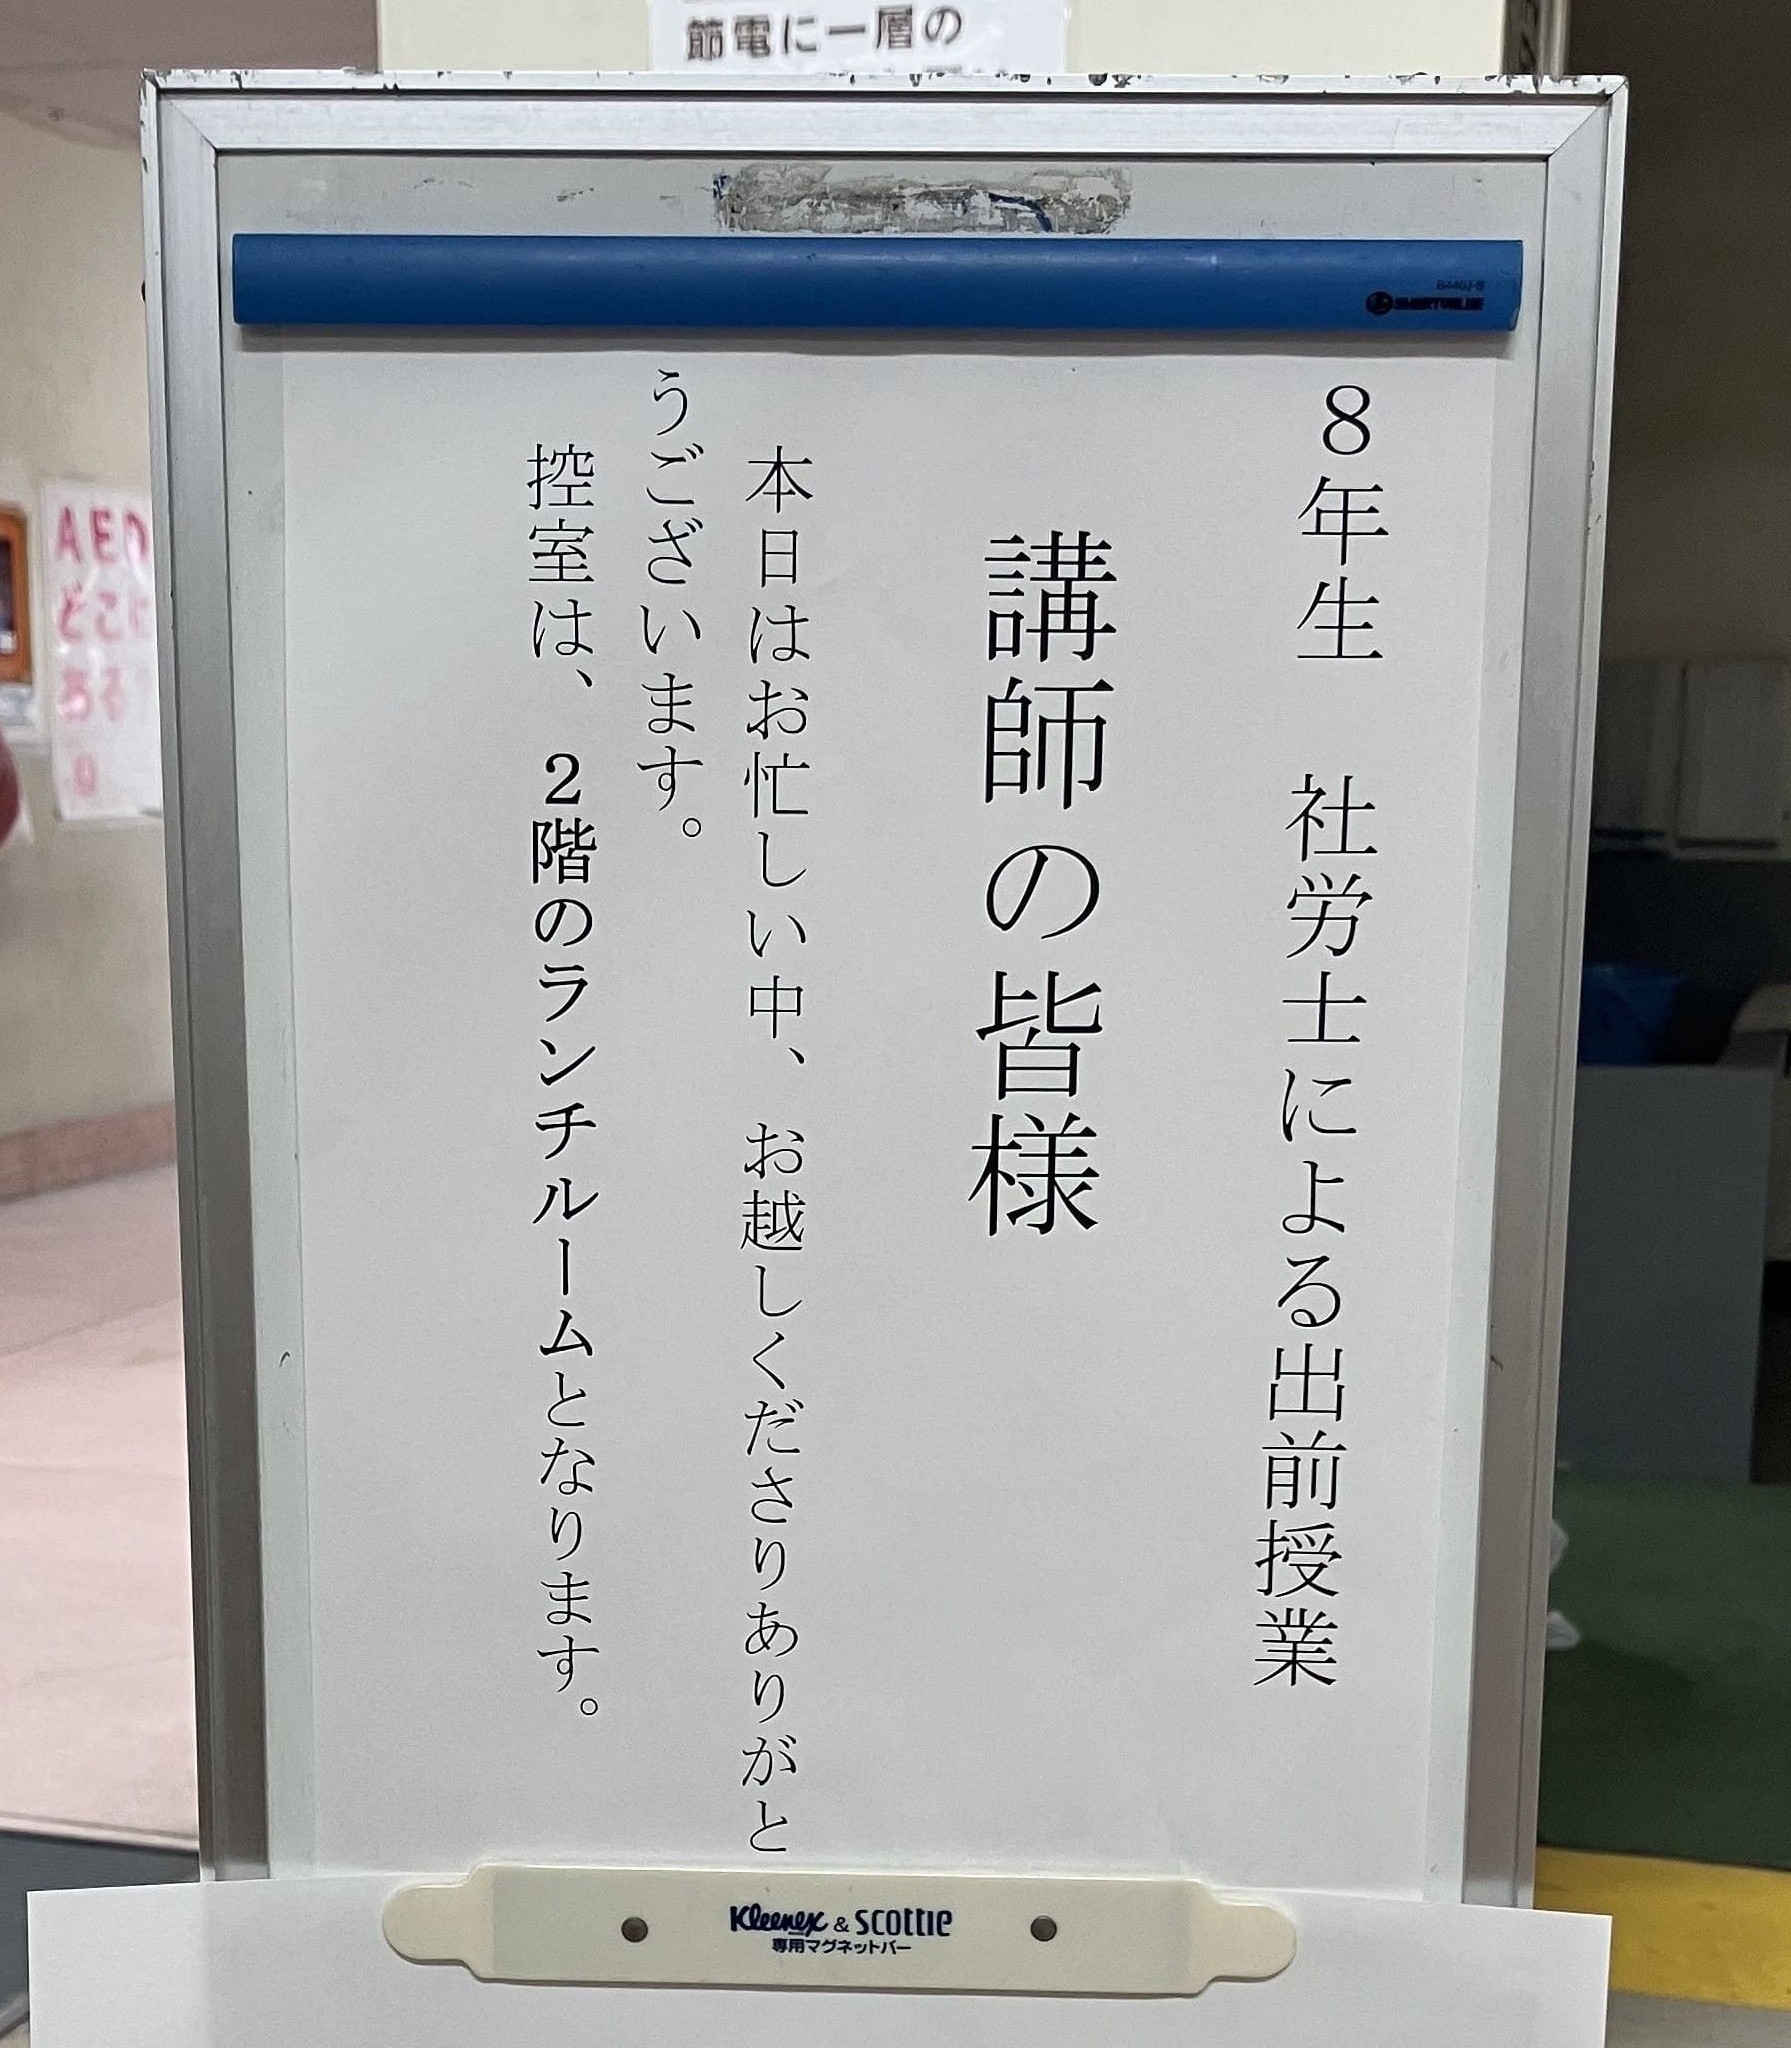 節電に一層の
8年生　社労士による出前授業
講師の皆様
本日はお忙しい中、お越しくださりありがと
うございます。
控室は、2階のランチルームとなります。
AED
どこに
ある
Kleenex & SCOTTIE
専用マグネットバー